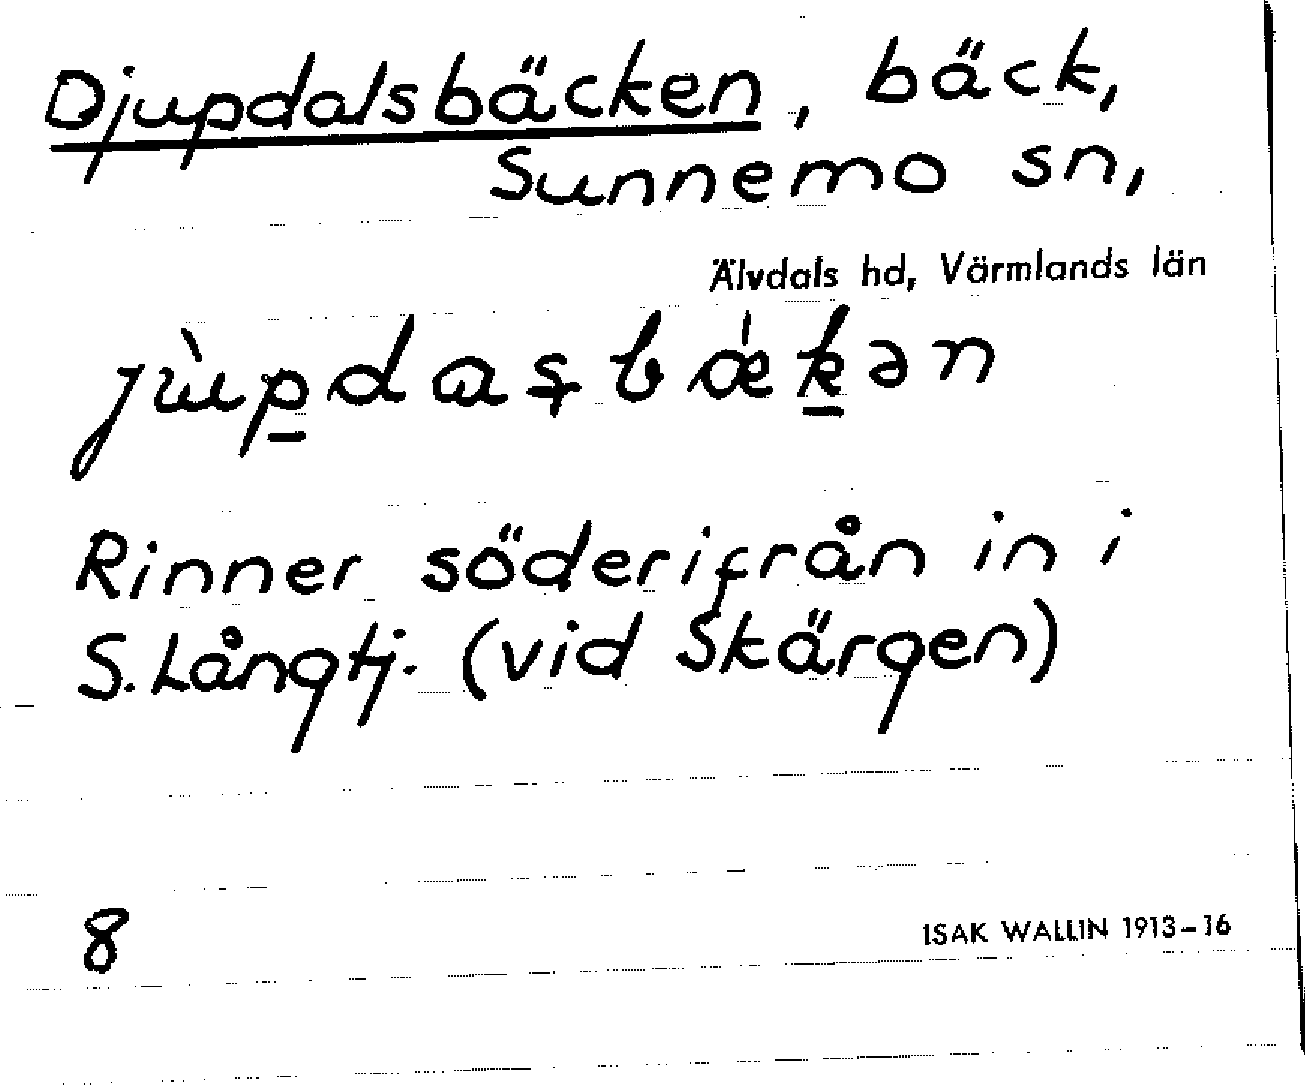 Djupdalsbäcken, bäck,
Sunnemo sn,
Älvdals hd, Värmlands län
jùp̲das̩bǽk̲ən
Rinner söderifrån in i
S. Långtj. (vid Skärgen)
8
ISAK WALLIN 1913–16